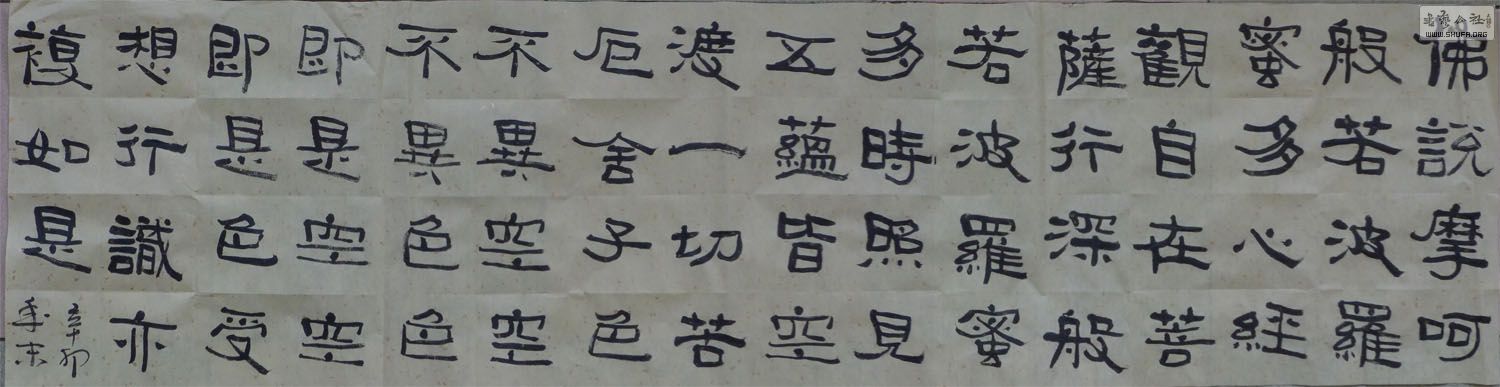 佛說摩呵
般若波羅
蜜多心經
觀自在菩
薩行深般
若波羅蜜
多時照見
五蘊皆空
渡一切苦
厄舍子色
不異空空
不異色色
即是空空
即是色受
想行識亦
複如是
辛卯
WWW.SHUFA.ORG